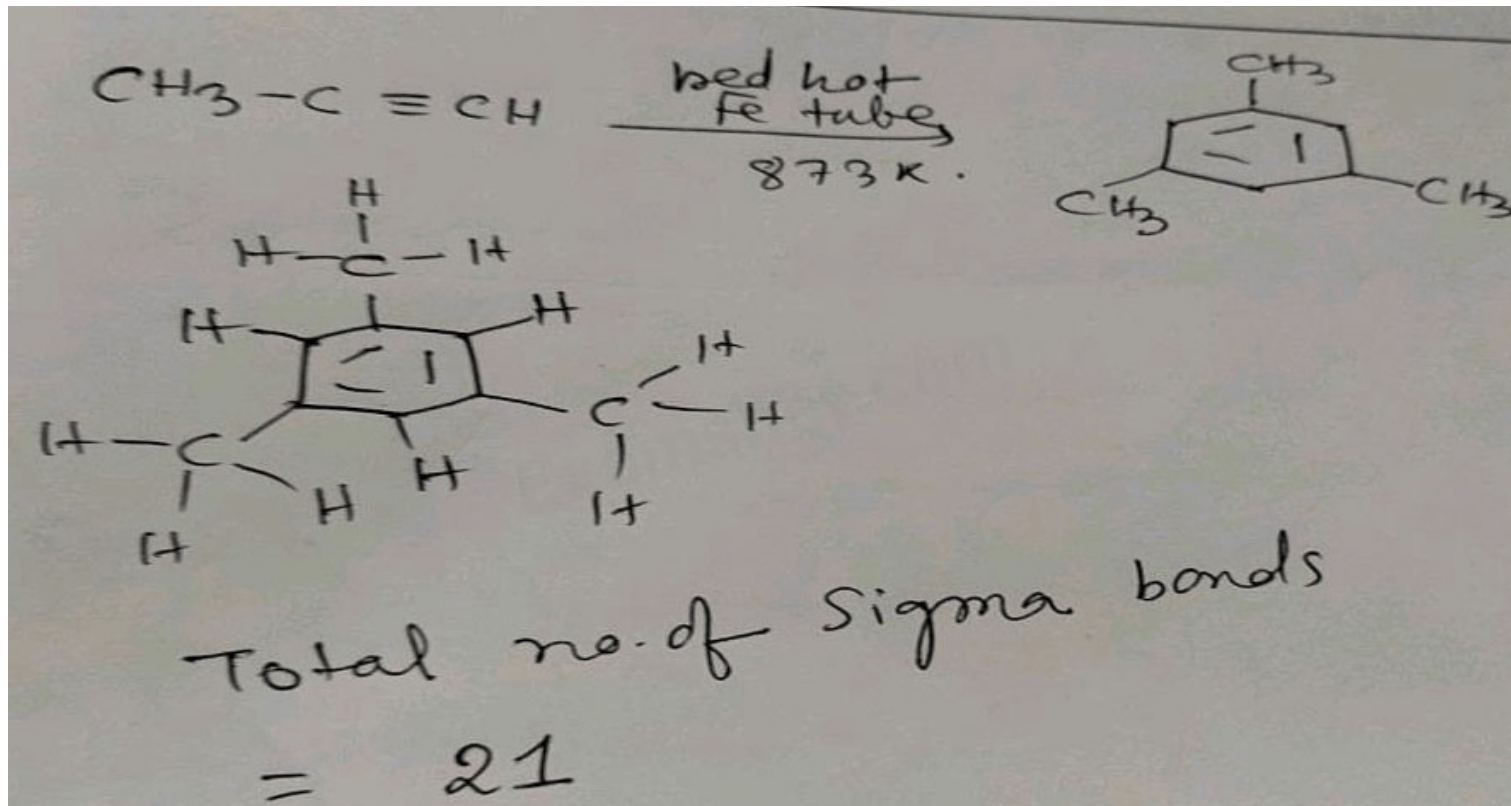 CH3-C≡CH
red hot
Fe tube
873K.
CH3
CH3
CH3
H
H-C-H
H
H
H
H
H-C
C
H
H
H
H
H
Total no. of Sigma bonds
= 21